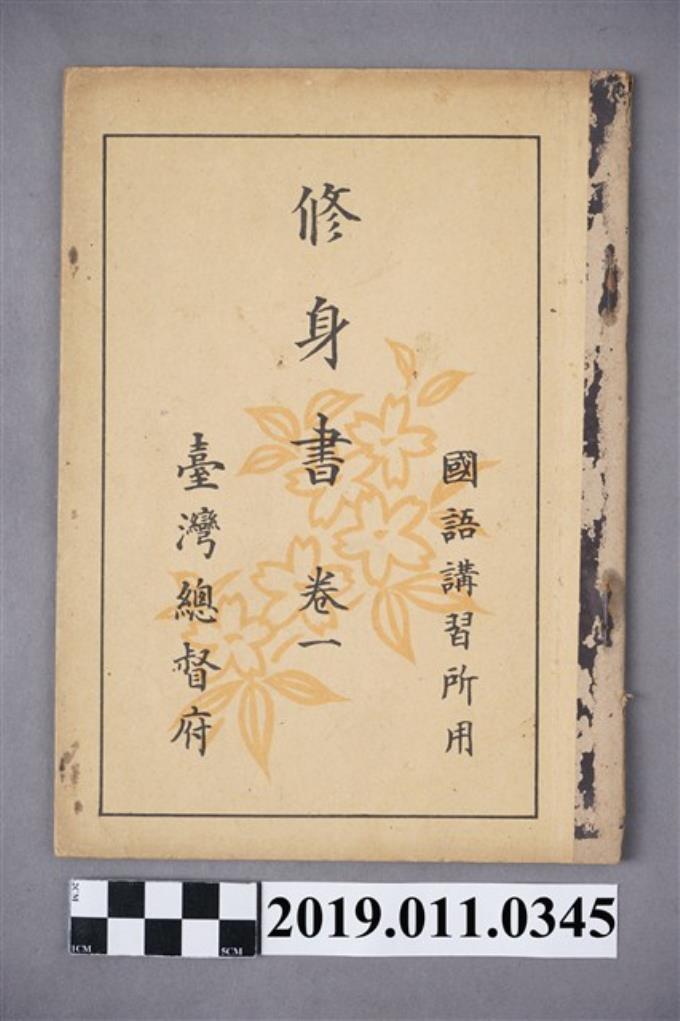 國語講習所用
修身書 卷一
臺灣總督府
2CM
1CM
5CM
2019.011.0345